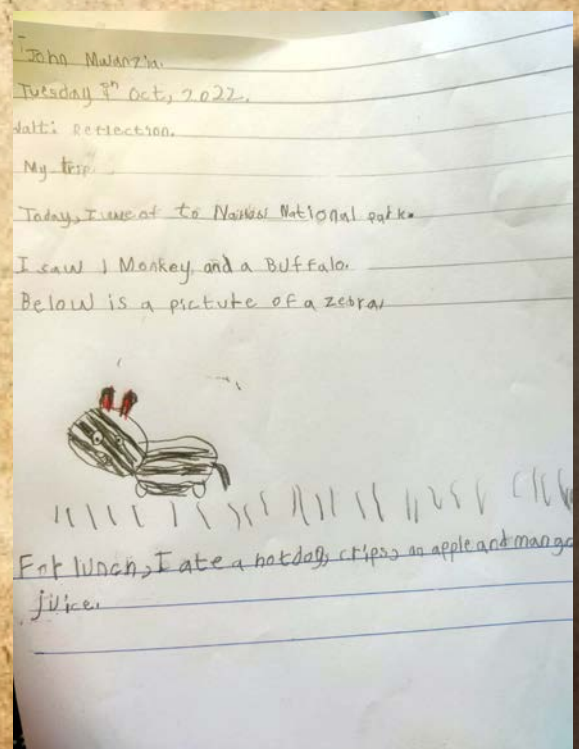 John Mwanzia.
Tuesday 8th Oct, 2022.
Reflection.
My trip
Today, I went to National park.
I saw 1 Monkey, and a Buffalo.
Below is a picture of a zebra,
For lunch, I ate a hotdog, crips, an apple and mango
juice.